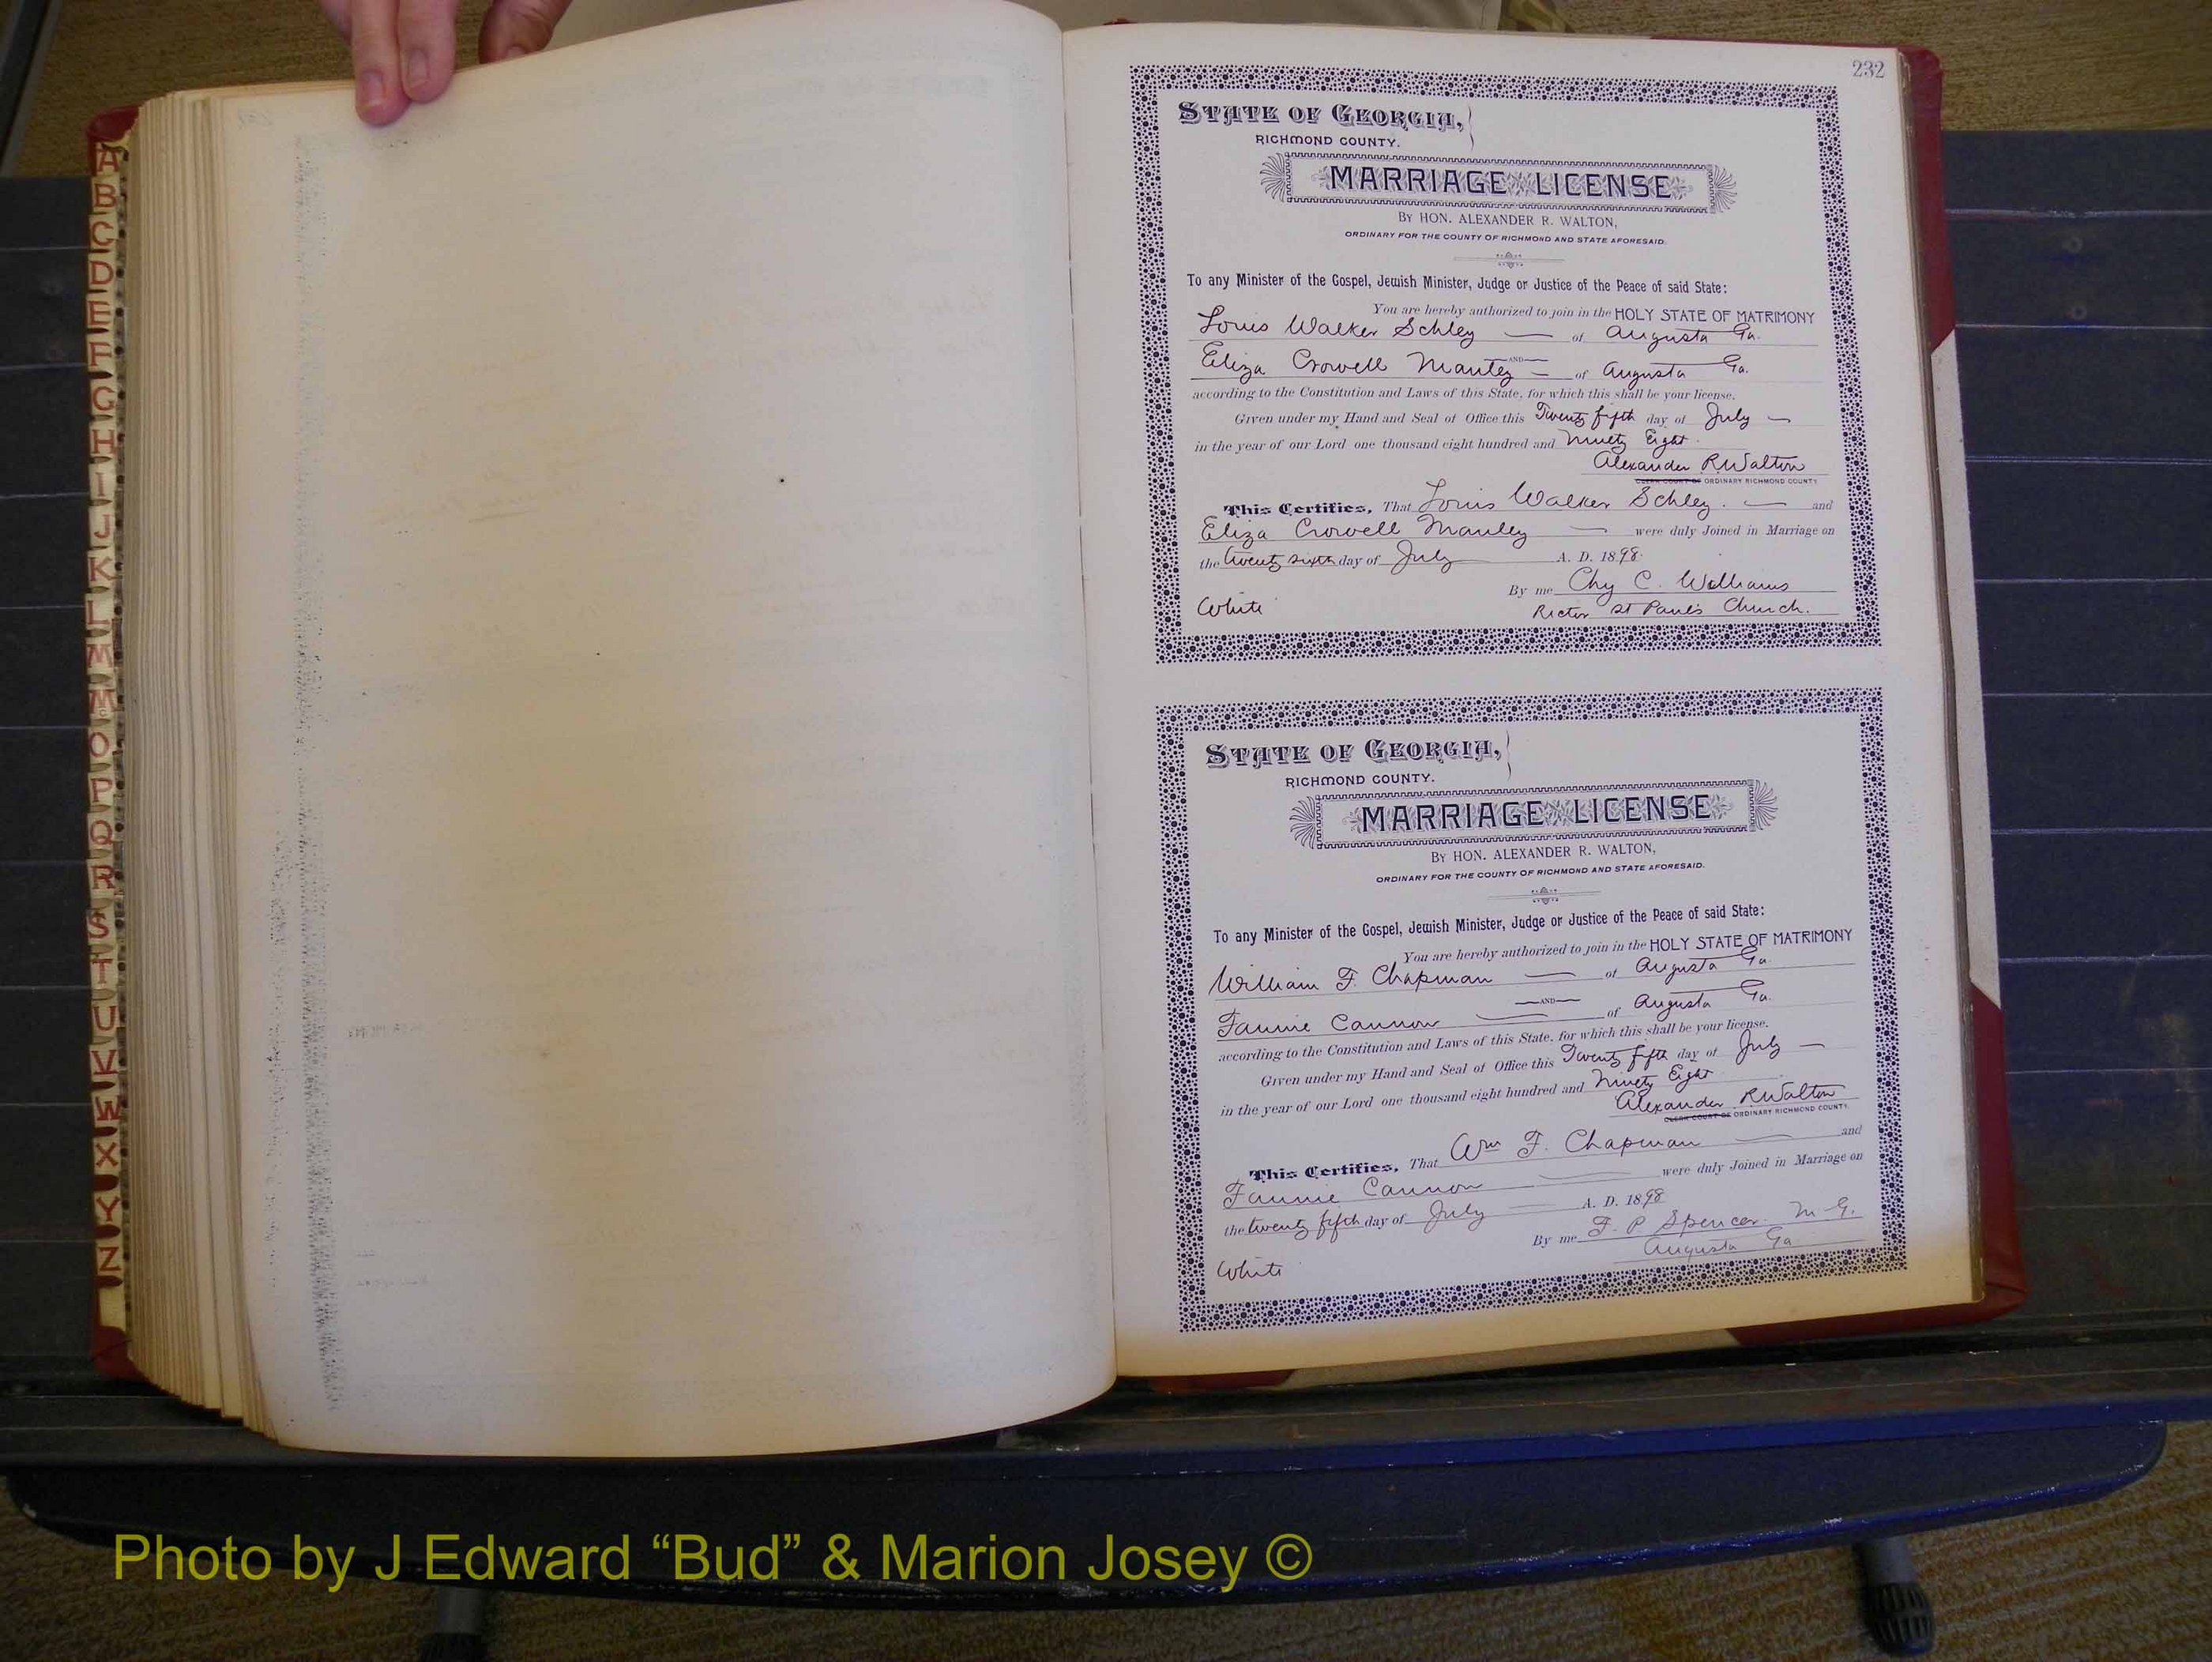 232
STATE OF GEORGIA,
RICHMOND COUNTY.
MARRIAGE LICENSE
BY HON. ALEXANDER R. WALTON,
ORDINARY FOR THE COUNTY OF RICHMOND AND STATE AFORESAID.
To any Minister of the Gospel, Jewish Minister, Judge or Justice of the Peace of said State:
You are hereby authorized to join in the HOLY STATE OF MATRIMONY
Louis Walker Schley — of Augusta Ga.
—AND—
Eliza Crowell Manley — of Augusta Ga.
according to the Constitution and Laws of this State, for which this shall be your license.
Given under my Hand and Seal of Office this Twenty fifth day of July —
in the year of our Lord one thousand eight hundred and Ninety Eight.
Alexander R Walton
CLERK COURT OF ORDINARY RICHMOND COUNTY
This Certifies, That Louis Walker Schley. — and
Eliza Crowell Manley — were duly Joined in Marriage on
the twenty sixth day of July A. D. 1898.
By me Chy C. Williams
White Rector St Paul's Church.
STATE OF GEORGIA,
RICHMOND COUNTY.
MARRIAGE LICENSE
BY HON. ALEXANDER R. WALTON,
ORDINARY FOR THE COUNTY OF RICHMOND AND STATE AFORESAID.
To any Minister of the Gospel, Jewish Minister, Judge or Justice of the Peace of said State:
You are hereby authorized to join in the HOLY STATE OF MATRIMONY
William F. Chapman — of Augusta Ga.
—AND—
Fannie Cannon — of Augusta Ga.
according to the Constitution and Laws of this State, for which this shall be your license.
Given under my Hand and Seal of Office this Twenty fifth day of July —
in the year of our Lord one thousand eight hundred and Ninety Eight
Alexander R Walton
CLERK COURT OF ORDINARY RICHMOND COUNTY.
This Certifies, That Wm F. Chapman — and
Fannie Cannon — were duly Joined in Marriage on
the twenty fifth day of July — A. D. 1898
By me F. P. Spencer M. G.
Augusta Ga
White
A
B
C
D
E
F
G
H
I
J
K
L
M
Mc
O
P
Q
R
S
T
U
V
W
X
Y
Z
Photo by J Edward “Bud” & Marion Josey ©